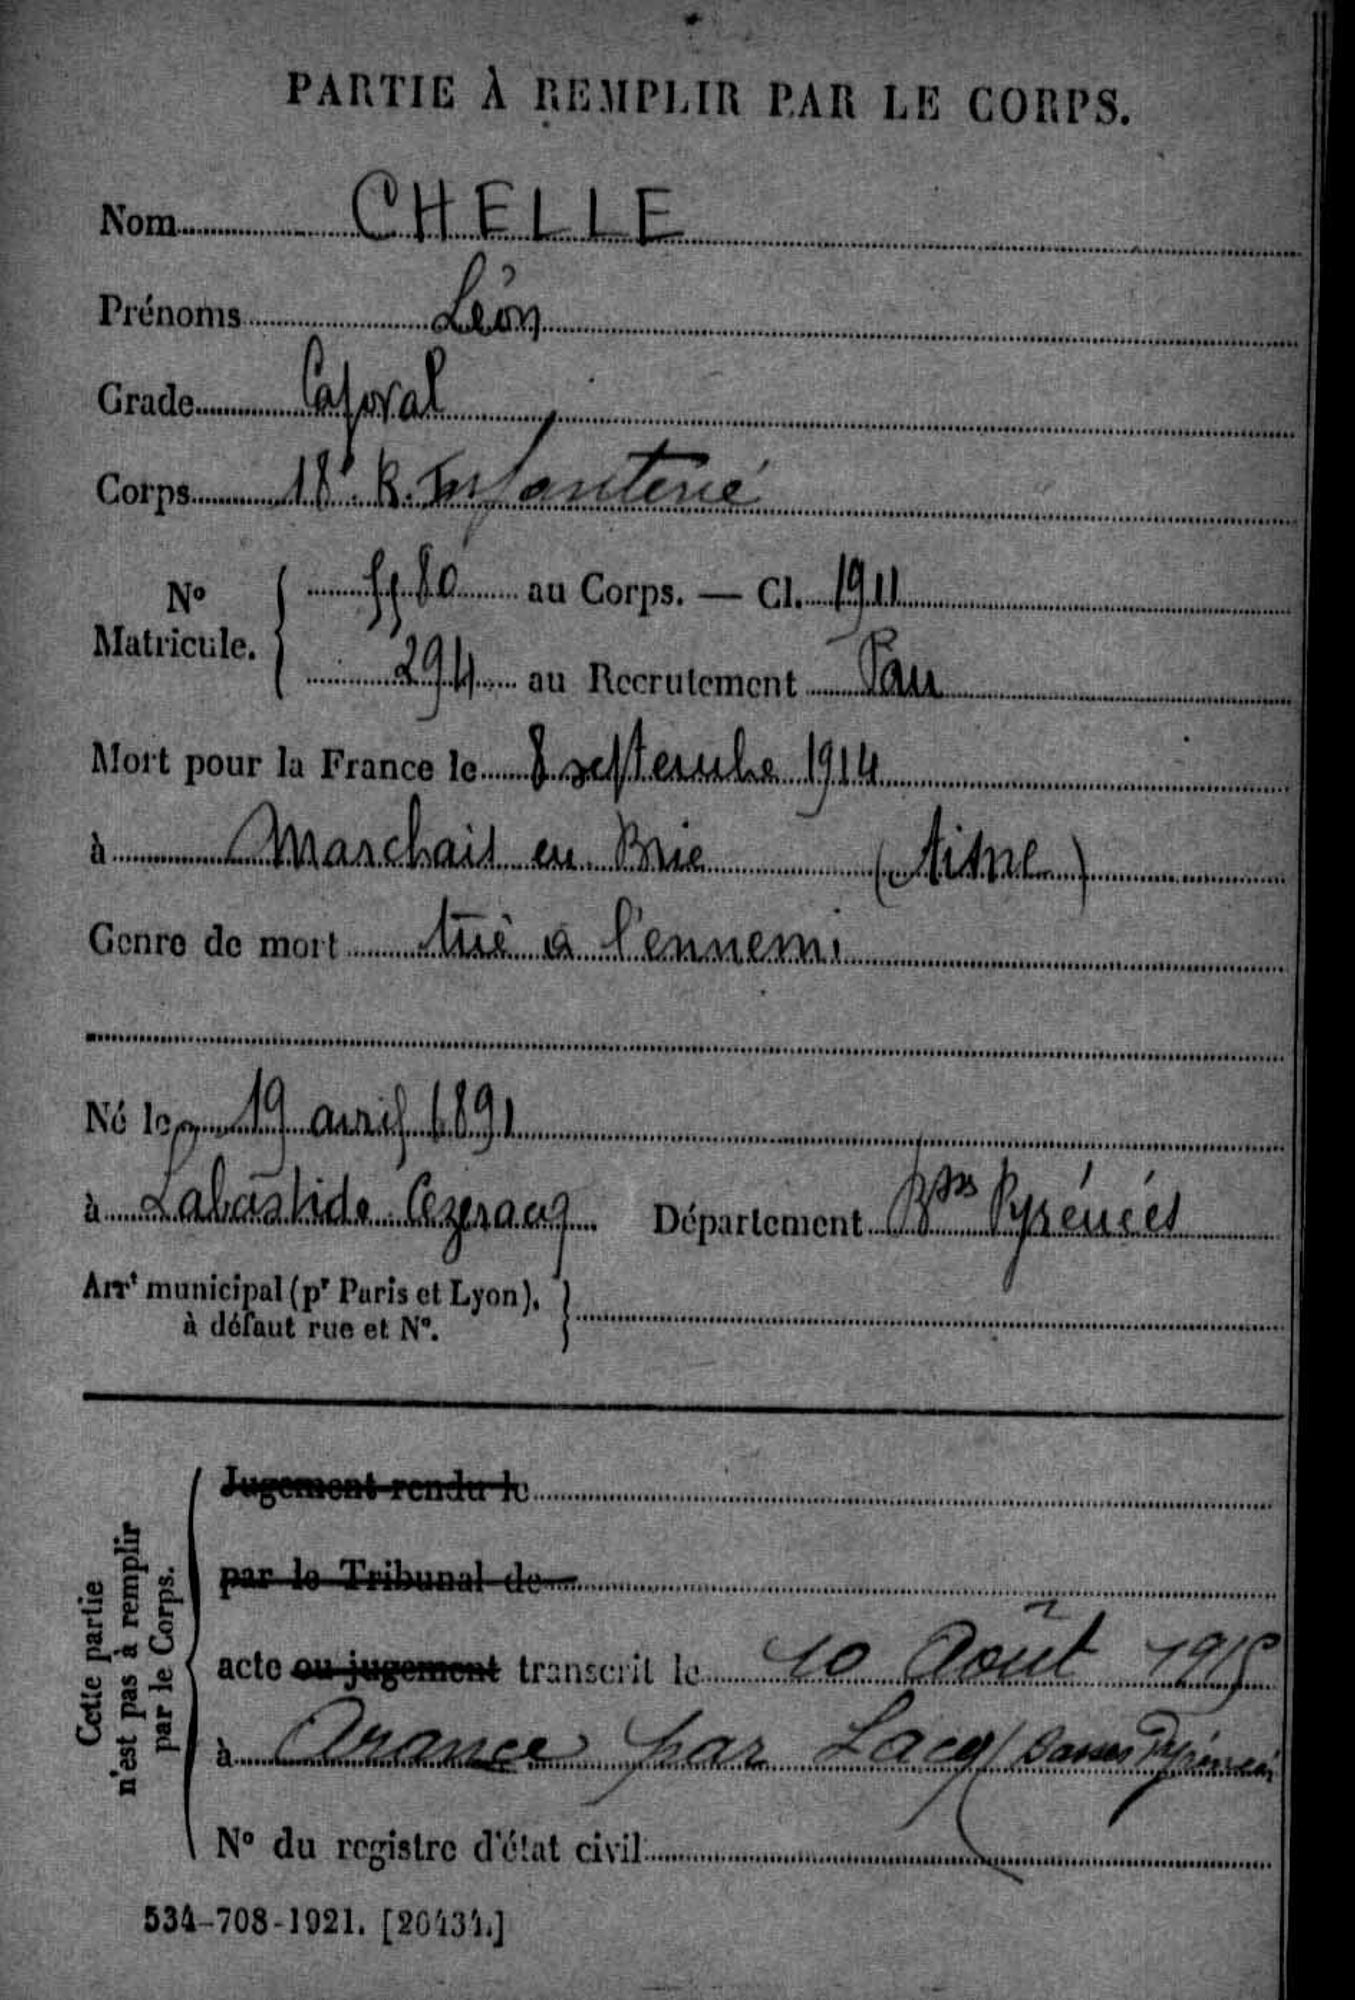 PARTIE À REMPLIR PAR LE CORPS.
Nom CHELLE
Prénoms Léon
Grade Caporal
Corps 18e R. Infanterie
No Matricule. 5580 au Corps. — Cl. 1911
294 au Recrutement Pau
Mort pour la France le 8 septembre 1914
à Marchais en Brie (Aisne)
Genre de mort tué à l'ennemi
Né le 19 avril 1891
à Labastide Cézeracq Département Bses Pyrénées
Arrt municipal (pr Paris et Lyon),
à défaut rue et No.
Cette partie
n'est pas à remplir
par le Corps.
Jugement rendu le
par le Tribunal de
acte ou jugement transcrit le 10 Août 1915
à Arance par Lacq (Basses Pyrénées
No du registre d'état civil
534-708-1921. [26434.]